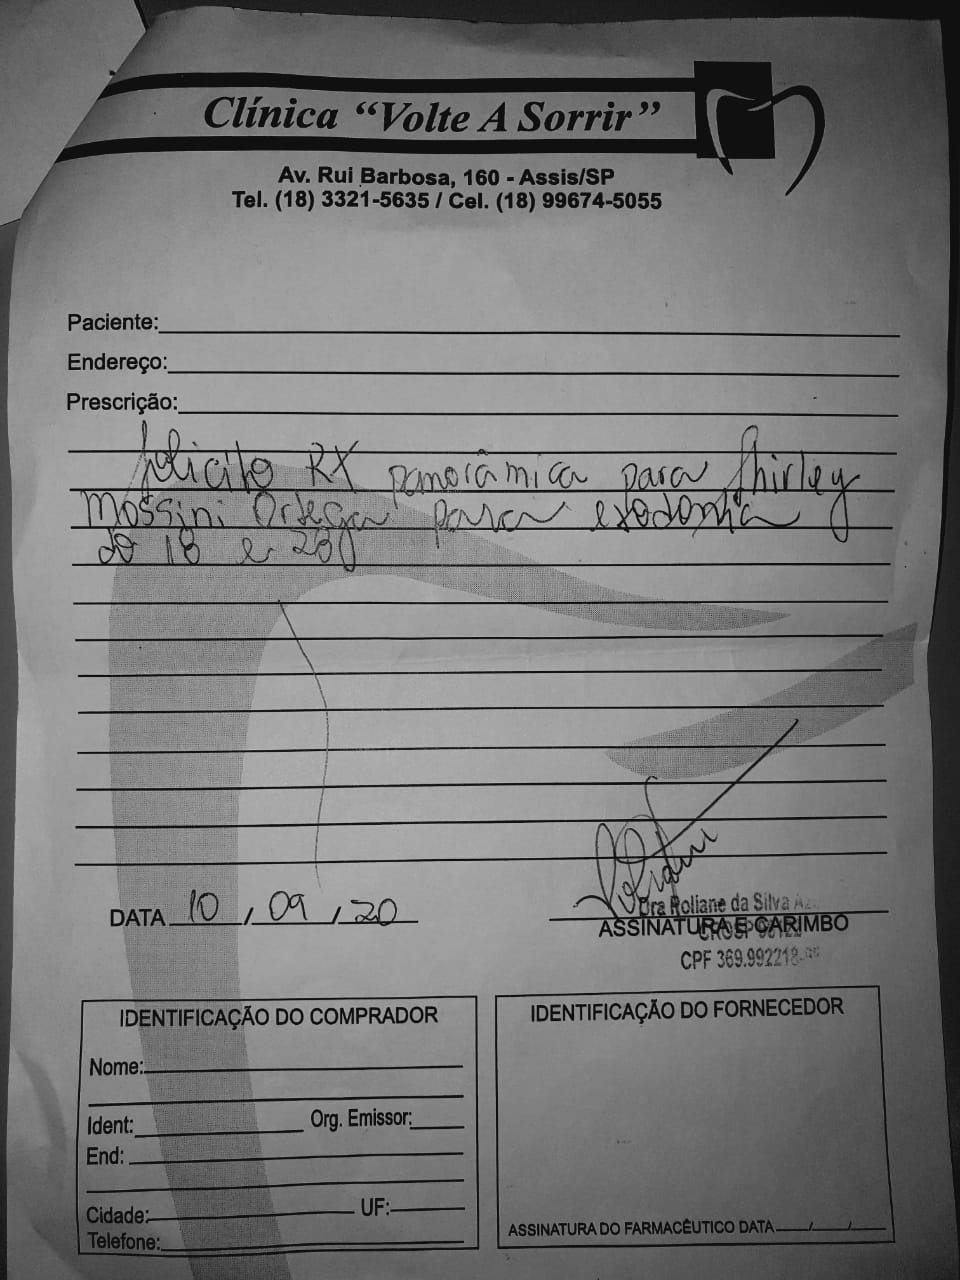 Clínica “Volte A Sorrir”
Av. Rui Barbosa, 160 - Assis/SP
Tel. (18) 3321-5635 / Cel. (18) 99674-5055
Paciente:
Endereço:
Prescrição:
Solicito RX panorâmica para Shirley
Mossini Ortega para exodontia
do 18 e 28
DATA 10 / 09 / 20
Dra Roliane da Silva
ASSINATURA E CARIMBO
CROSP
CPF 369.992218-
IDENTIFICAÇÃO DO COMPRADOR
Nome:
Ident: Org. Emissor:
End:
Cidade: UF:
Telefone:
IDENTIFICAÇÃO DO FORNECEDOR
ASSINATURA DO FARMACÊUTICO DATA / /